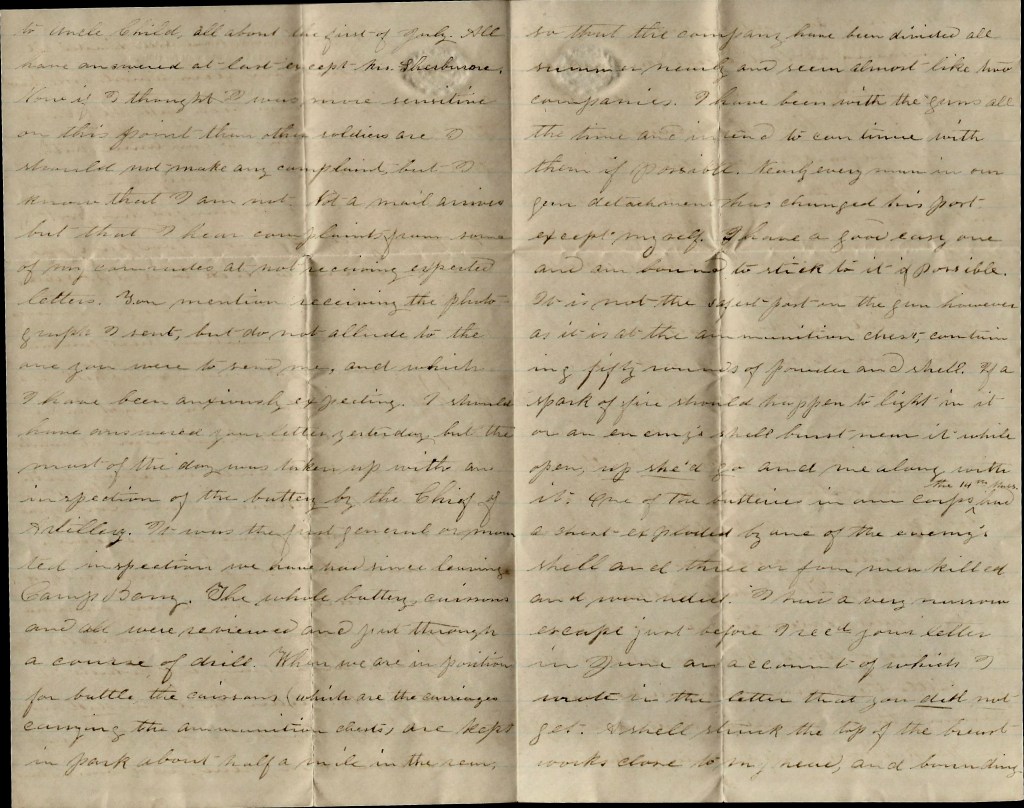 to Uncle Child, all about the first of July. All
have answered at last except Mr. Sherburne.
Now if I thought I was more sensitive
on this point than other soldiers are I
should not make any complaint, but I
know that I am not. Not a mail arrives
but that I hear complaints from some
of my comrades at not receiving expected
letters. You mention receiving the photo-
graph I sent, but do not allude to the
one you were to send me, and which
I have been anxiously expecting. I should
have answered your letter yesterday but the
most of the day was taken up with an
inspection of the battery by the Chief of
Artillery. It was the first general or moun
ted inspection we have had since leaving
Camp Barry. The whole battery, caissons
and all were reviewed and put through
a course of drill. When we are in position
for battle the caissons (which are the carriages
carrying the ammunition chests) are kept
in park about half a mile in the rear,
so that the company have been divided all
summer nearly and seem almost like two
companies. I have been with the guns all
the time and intend to continue with
them if possible. Nearly every man in our
gun detachment has changed his post
except myself. I have a good easy one
and am bound to stick to it if possible.
It is not the safest post on the gun however
as it is at the ammunition chest, contain
ing fifty rounds of powder and shell. If a
spark of fire should happen to light in it
or an enemy's shell burst near it while
open, up she'd go and me along with
it. One of the batteries in our corps, the 14th Mass. had
a chest exploded by one of the enemy's
shell and three or four men killed
and wounded. I had a very narrow
escape just before I recd your letter
in June an account of which I
wrote in the letter that you did not
get. A shell struck the top of the breast
works close to my head, and bounding